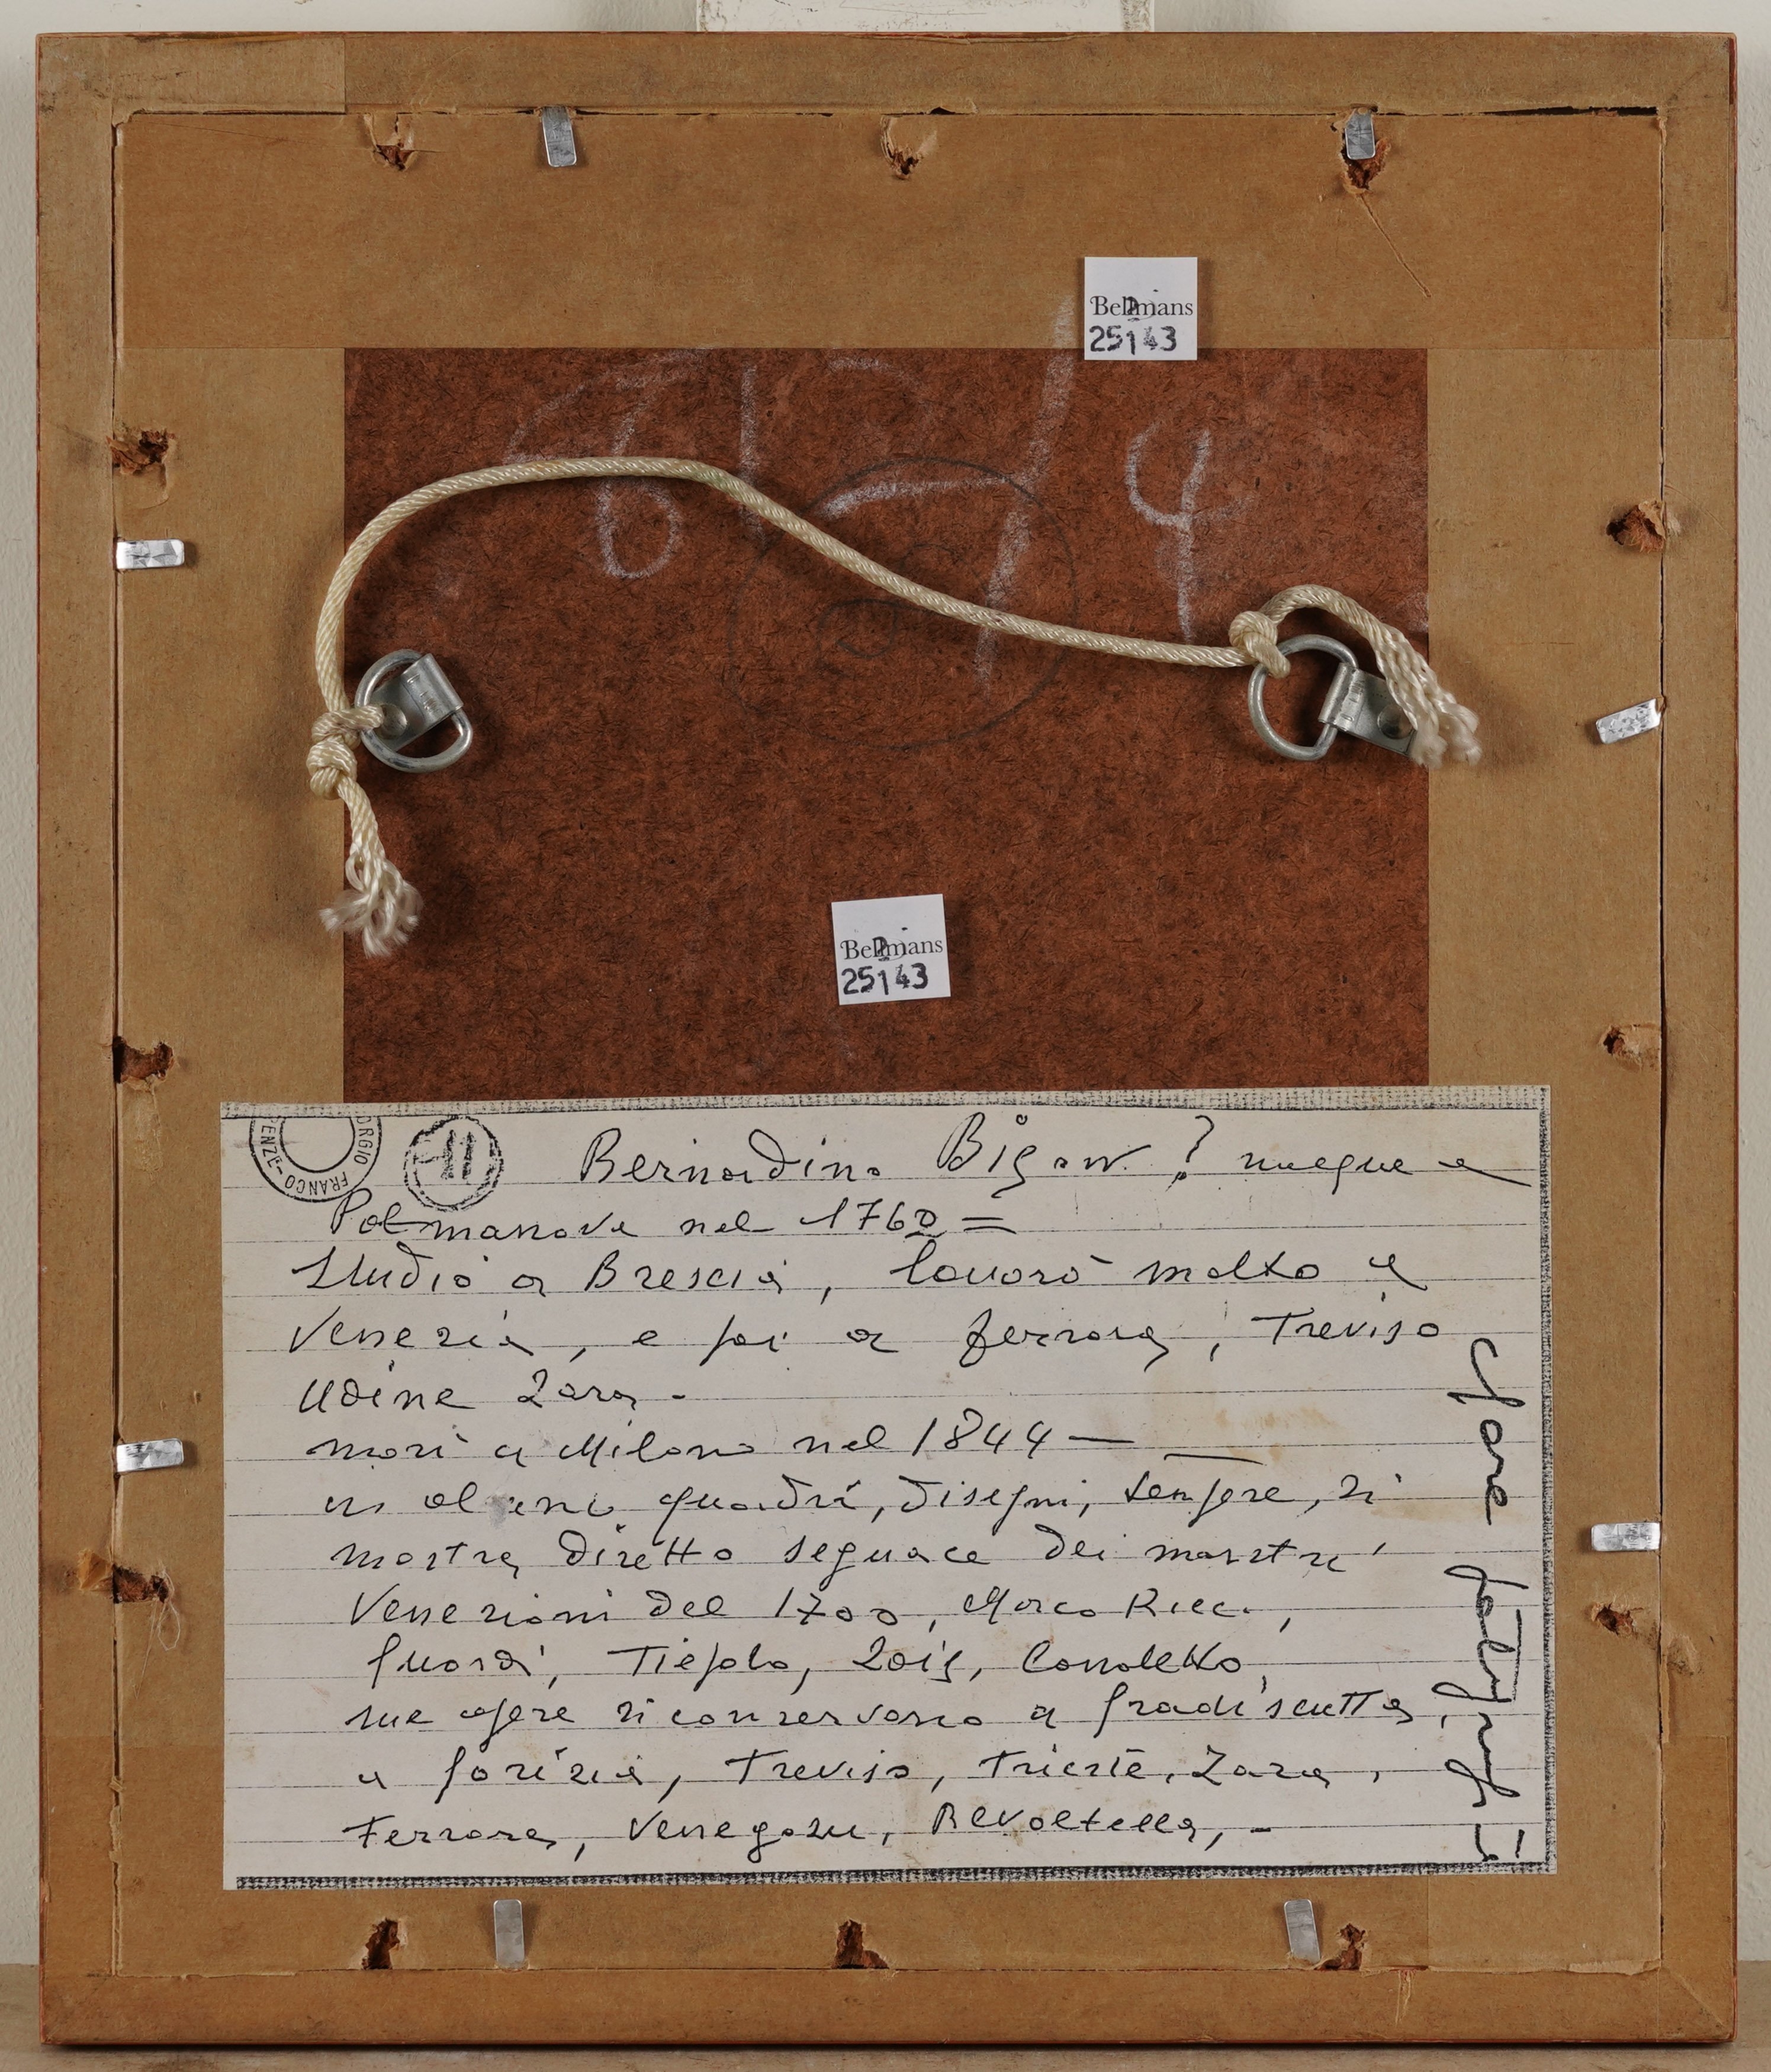 Bellmans
25143
614
Bellmans
25143
ORGIO FRANCO
ENZE-
11
Bernardino Bison ? nacque a
Palmanova nel 1762 =
Studiò a Brescia, lavorò molto a
Venezia, e poi a Ferrara, Treviso
Udine Zara -
morì a Milano nel 1844 —
quadri, disegni, sempre, si
mostra diretto seguace dei maestri
Veneziani del 1700, Marco Ricci,
Guardi, Tiepolo, Zais, Canaletto,
sue opere si conservano a Gradiscutta,
a Gorizia, Treviso, Trieste, Zara,
Ferrara, Venegazu, Revoltella, -